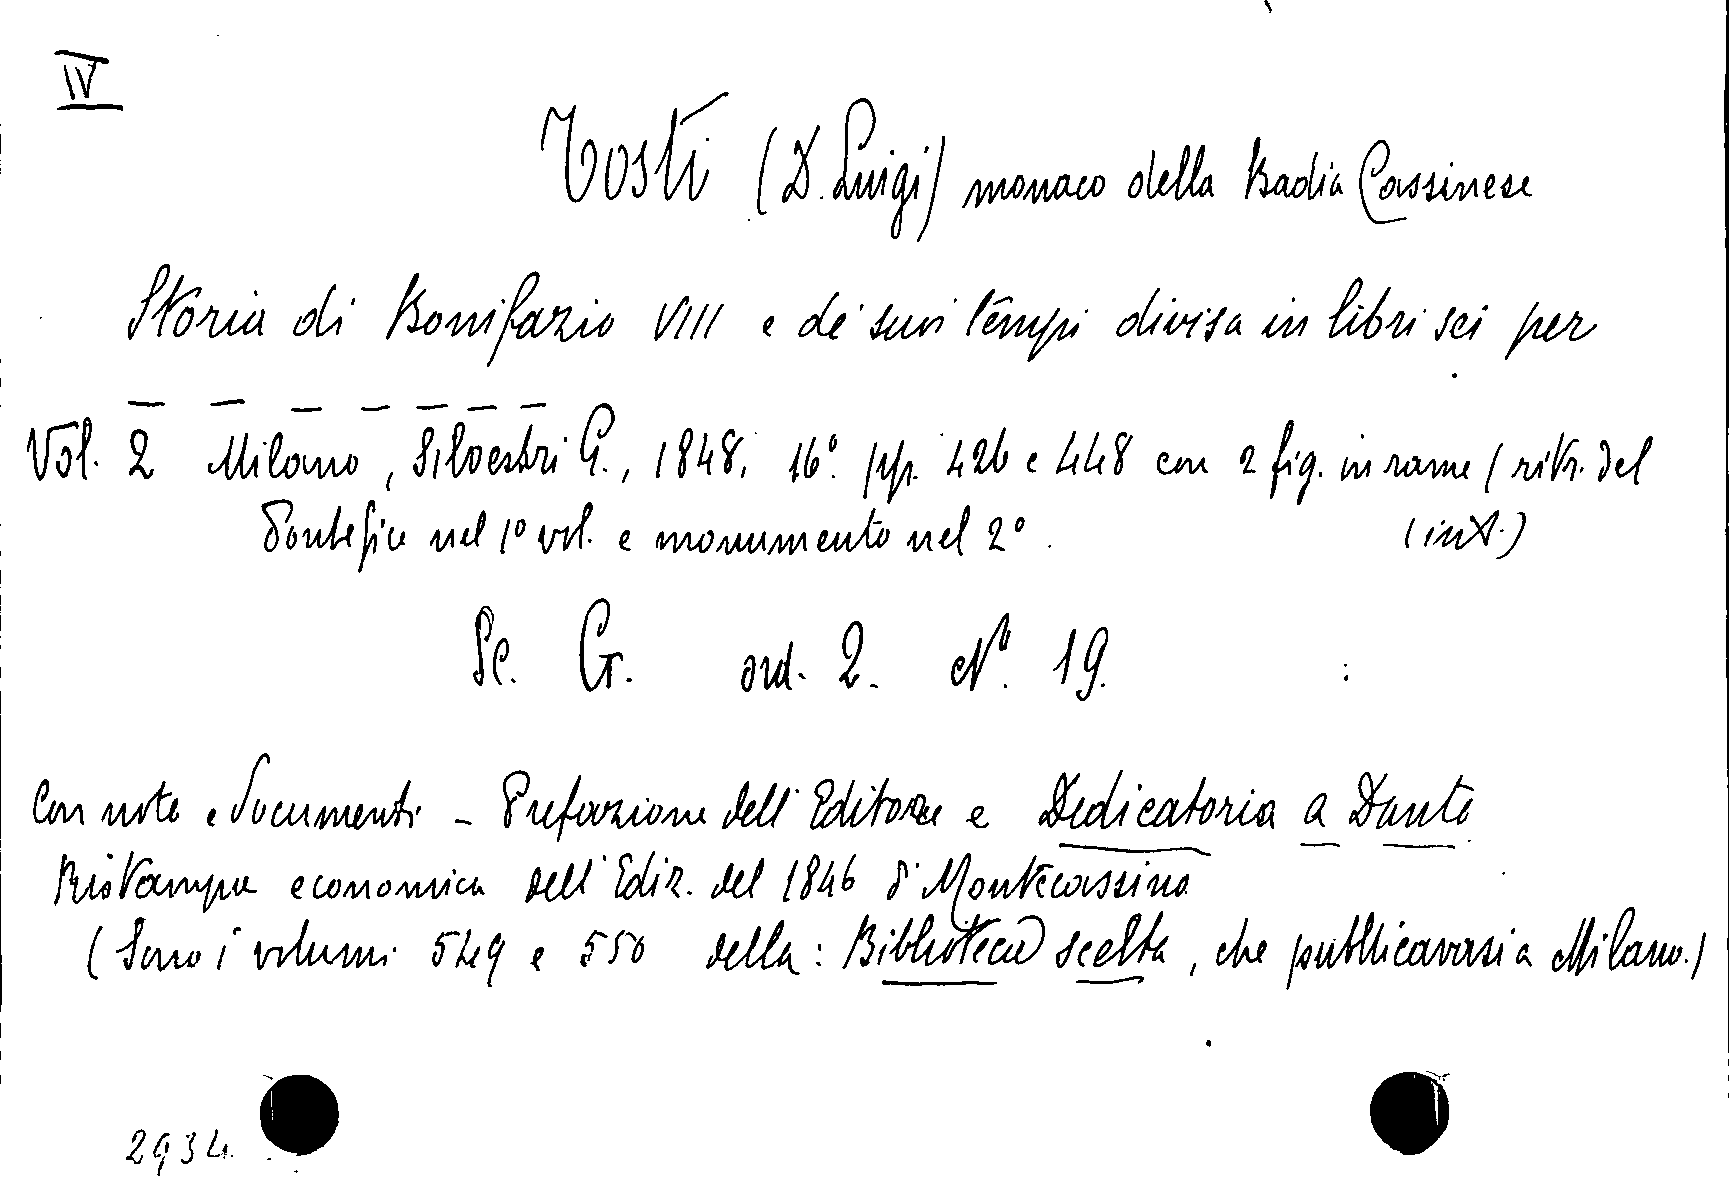 IV
Tosti (D. Luigi) monaco della Badia Cassinese
Storia di Bonifazio VIII e de' suoi tempi divisa in libri sei per
— — — — — — —
Vol. 2 Milano, Silvestri G., 1848, 16° pp. 426 e 448 con 2 fig. in rame (ritr. del
Pontefice nel 1° vol. e monumento nel 2°. (int.)
Sc. G. ord. 2. N° 19.
Con note e documenti - Prefazione dell'Editore e Dedicatoria a Dante
Ristampa economica dell'Ediz. del 1846 di Montecassino
(Sono i volumi 549 e 550 della: Biblioteca scelta, che pubblicavasi a Milano.)
2934.